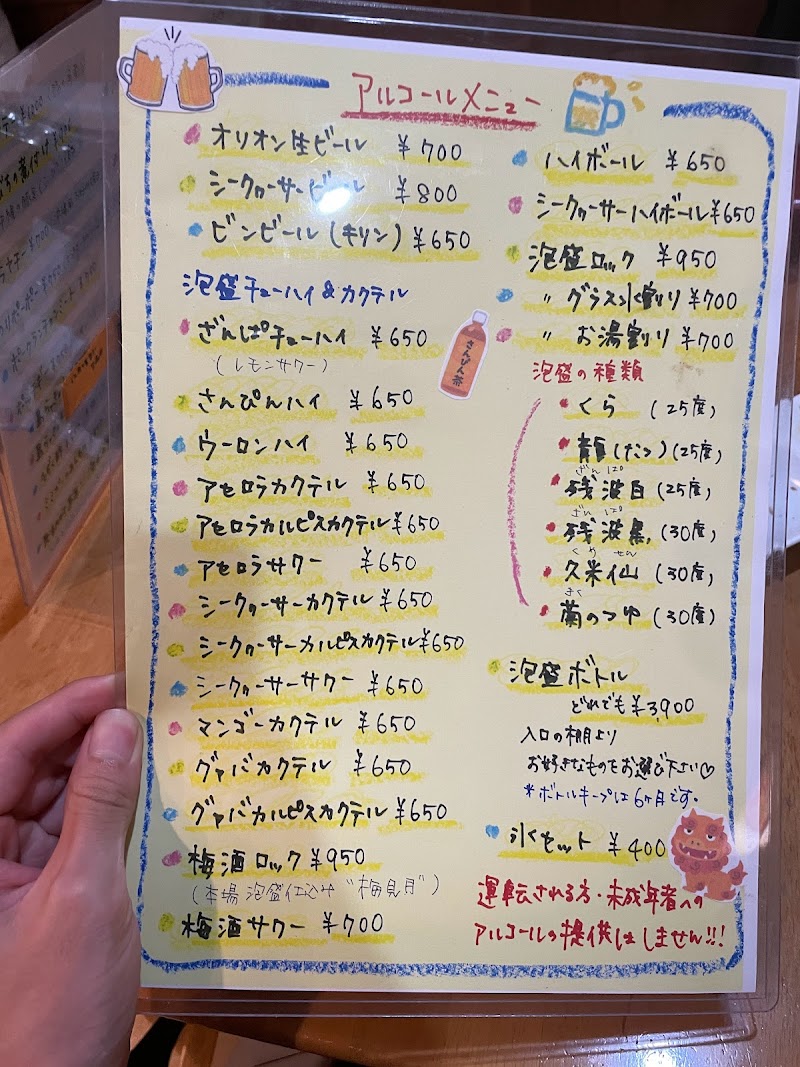 アルコールメニュー
オリオン生ビール ¥700
シークワーサービール ¥800
ビンビール(キリン) ¥650
泡盛チューハイ&カクテル
ざんぱチューハイ ¥650
(レモンサワー)
さんぴんハイ ¥650
ウーロンハイ ¥650
アセロラカクテル ¥650
アセロラカルピスカクテル ¥650
アセロラサワー ¥650
シークワーサーカクテル ¥650
シークワーサーカルピスカクテル ¥650
シークワーサーサワー ¥650
マンゴーカクテル ¥650
グァバカクテル ¥650
グァバカルピスカクテル ¥650
梅酒ロック ¥950
(本場泡盛仕込み "梅見月")
梅酒サワー ¥700
さんぴん茶
ハイボール ¥650
シークワーサーハイボール ¥650
泡盛ロック ¥950
〃 グラス水割り ¥700
〃 お湯割り ¥700
泡盛の種類
くら (25度)
龍(たつ) (25度)
ざんぱ
残波白 (25度)
ざんぱ
残波黒 (30度)
くめせん
久米仙 (30度)
きく
菊のつゆ (30度)
泡盛ボトル
どれでも ¥3,900
入口の棚より
お好きなものをお選び下さい♡
*ボトルキープは6ヶ月です。
氷セット ¥400
運転される方・未成年者への
アルコールの提供はしません!!!